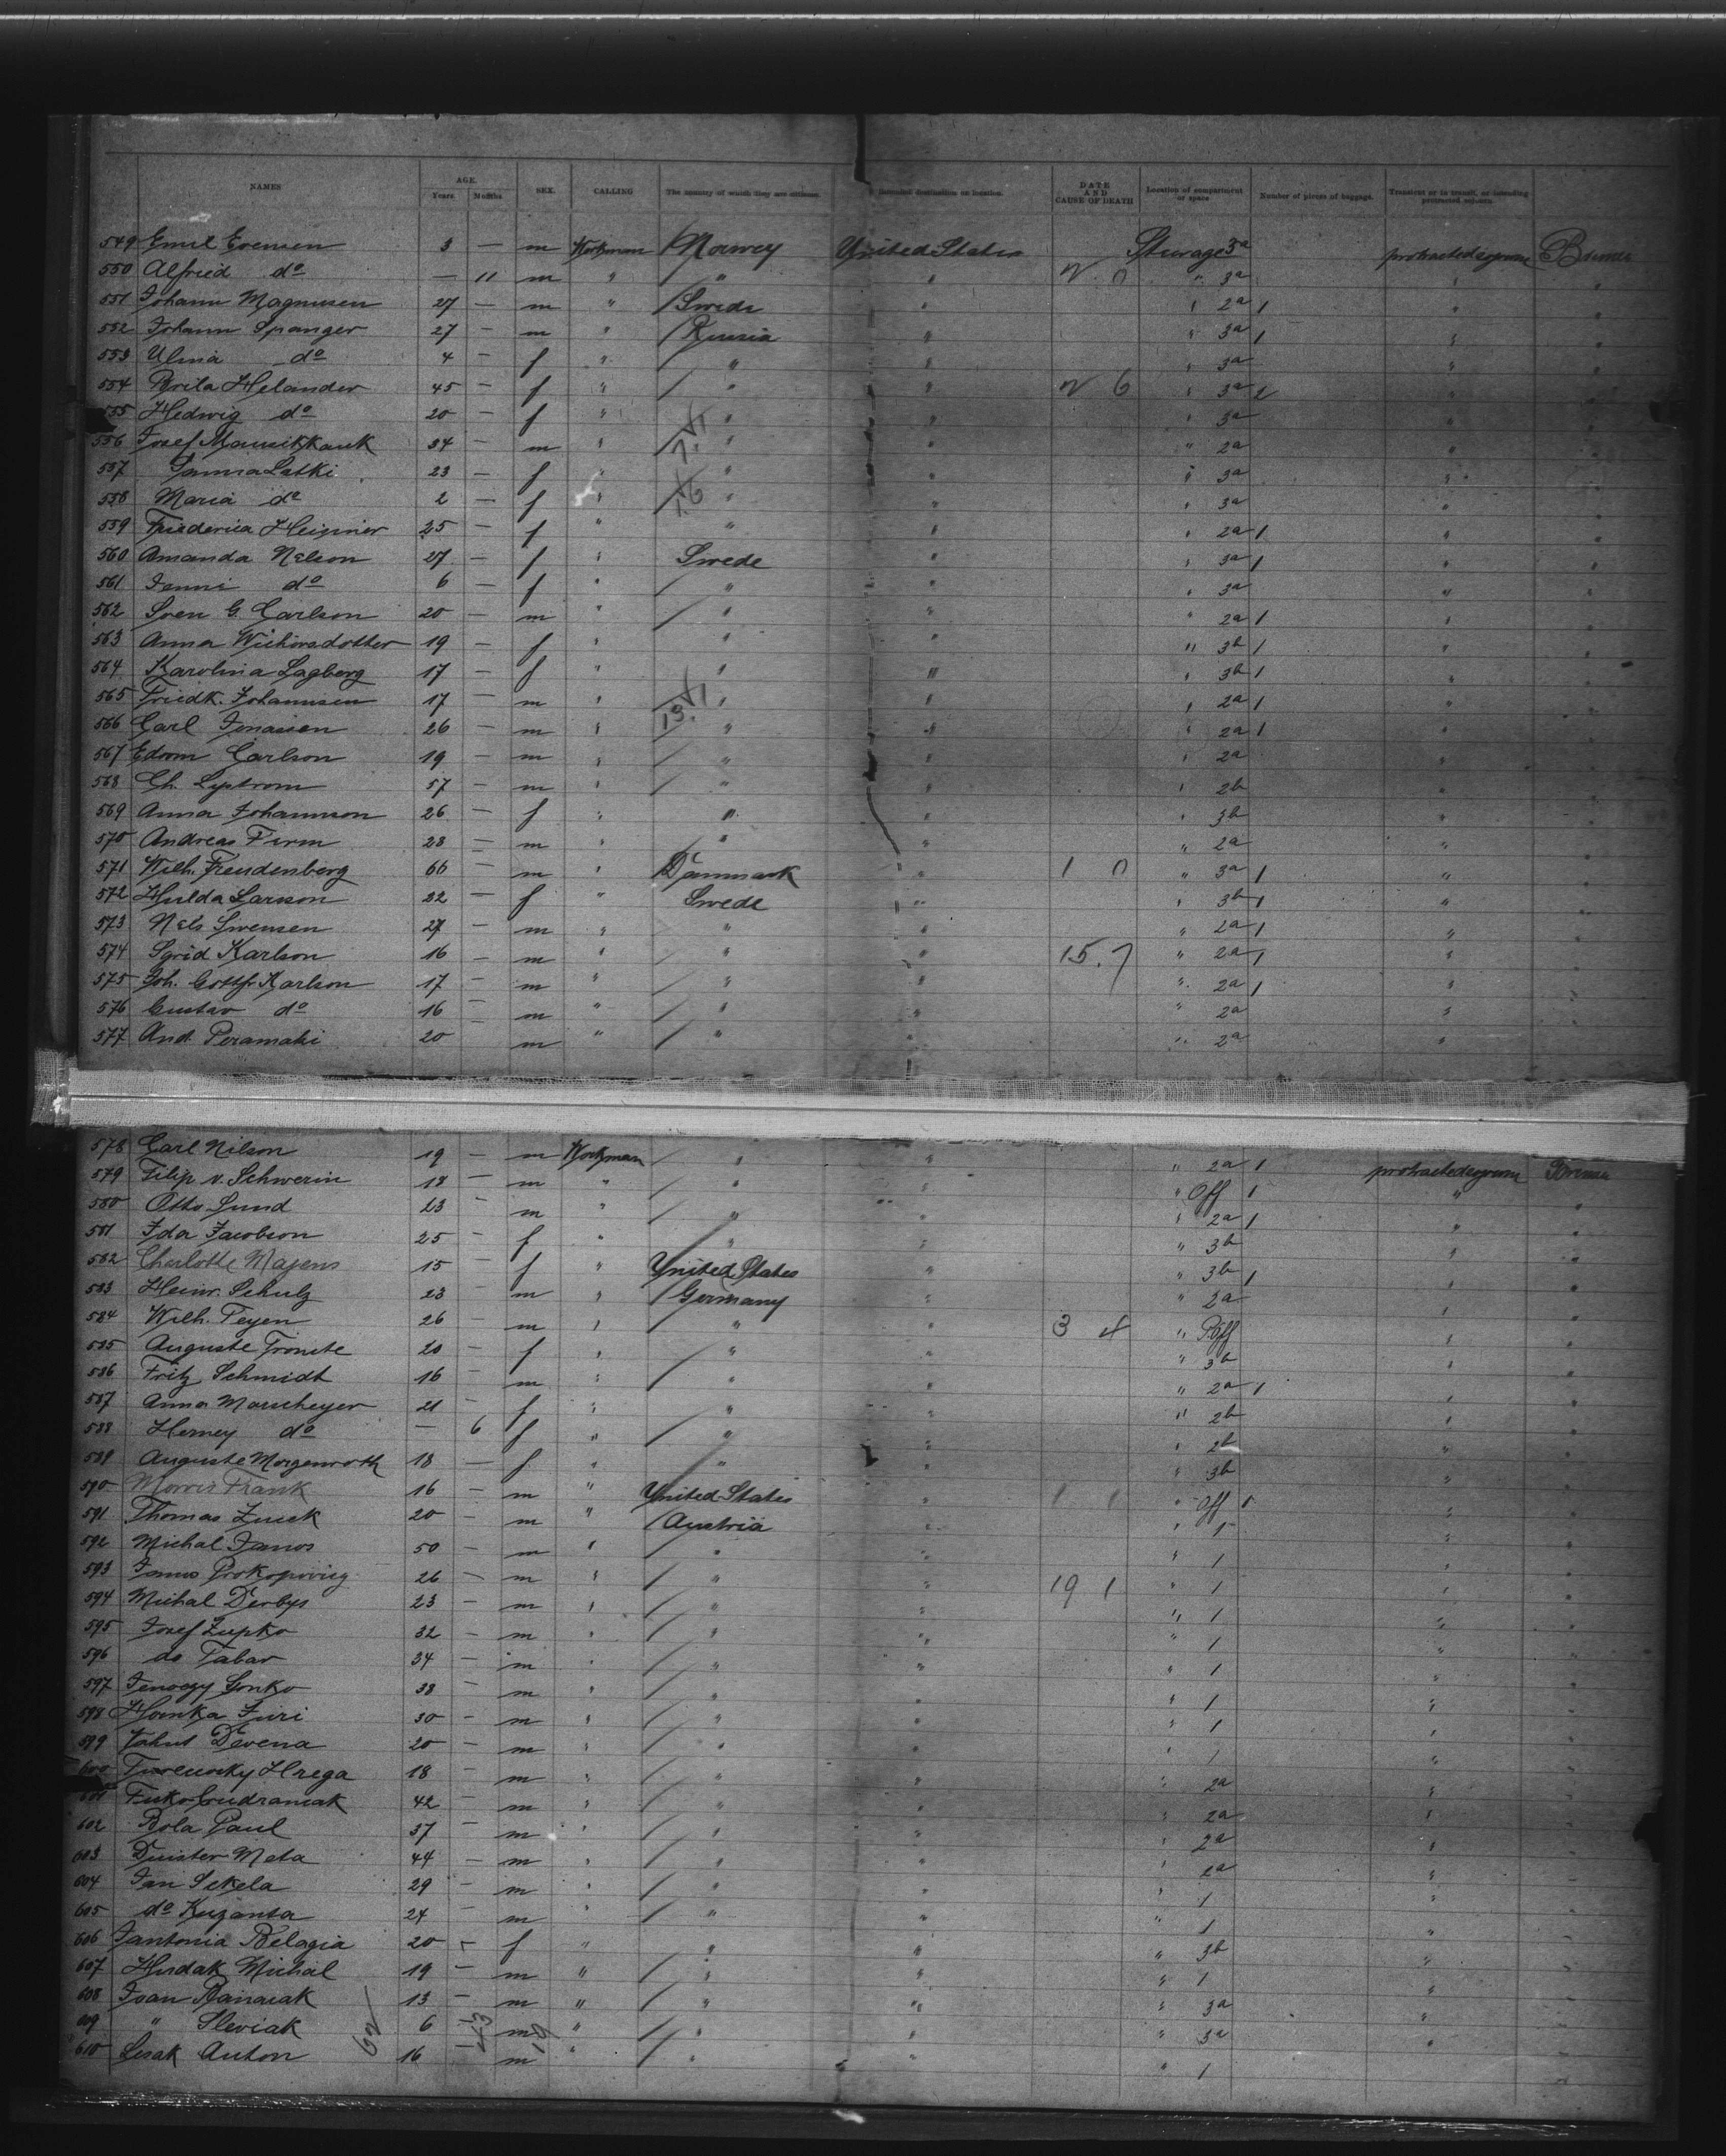 NAMES AGE. SEX. CALLING The country of which they are citizens. Intended destination or location. DATE AND CAUSE OF DEATH Location of compartment or space Number of pieces of baggage. Transient or in transit, or intending protracted sojourn.
Years. Months.
549 Emil Evensen 3 — m Workman Norwey United States Sturage 3a protracted sojourn Bremen
550 Alfried do — 11 m " " " " 3a " "
551 Johann Magnusen 27 — m " Swede " " 2a 1 " "
552 Johann Spanger 27 — m " Russia " " 3a 1 " "
553 Ulma do 4 — f " " " " 3a " "
554 Brita Helander 45 — f " " " " 3a 2 " "
555 Hedwig do 20 — f " " " " 3a " "
556 Josef 34 — m " " " " 2a " "
557 Sanna Latki 23 — f " " " " 3a " "
558 Maria do 2 — f " " " " 3a " "
559 Friederica 25 — f " " " " 2a 1 " "
560 Amanda Nelson 27 — f " Swede " " 3a 1 " "
561 Jenni do 6 — f " " " " 3a " "
562 Sven G. Carlson 20 — m " " " " 2a 1 " "
563 Anna 19 — f " " " " 3b 1 " "
564 Karolina Lagberg 17 — f " " " " 3b 1 " "
565 Friedk. Johannsen 17 — m " " " " 2a 1 " "
566 Carl Jonassen 26 — m " " " " 2a 1 " "
567 Edvom Carlson 19 — m " " " " 2a " "
568 Ch. Lystrom 57 — m " " " " 2b " "
569 Anna Johannson 26 — f " " " " 3b " "
570 Andreas Firm 28 — m " " " " 2a " "
571 Wilh. Freudenberg 66 — m " Danmark " 1 0 " 3a 1 " "
572 Hulda Larsson 22 — f " Swede " " 3b 1 " "
573 Nels Swensen 27 — m " " " " 2a 1 " "
574 Sgrid Karlson 16 — m " " " 15.7 " 2a 1 " "
575 Joh. Gottfr. Karlson 17 — m " " " " 2a 1 " "
576 Gustav do 16 — m " " " " 2a " "
577 And. Peramaki 20 m " " " " 2a " "
578 Carl Nilson 19 — m Workman " " " 2a 1 protracted sojourn Bremen
579 Filip v. Schwerin 18 — m " " " " Off 1 " "
580 Otto Lund 23 — m " " " " 2a 1 " "
581 Ida Jacobson 25 — f " " " " 3b " "
582 Charlotte Majens 15 — f " United States " " 3b 1 " "
583 Heinr. Schulz 23 — m " Germany " " 2a " "
584 Wilh. Peyen 26 — m " " " 3 4 " P.Off " "
585 Auguste 20 — f " " " " 3b " "
586 Fritz Schmidt 16 — m " " " " 2a 1 " "
587 Anna Marscheyer 21 — f " " " " 2b " "
588 Herney do — 6 f " " " " 2b " "
589 Auguste Morgenroth 18 — f " " " " 3b " "
590 Morris Frank 16 — m " United States " 1 1 " Off 1 " "
591 Thomas 20 — m " Austria " " 1 " "
592 Michal Janos 50 — m " " " " 1 " "
593 Janus Prokopovicz 26 — m " " " 19 1 " 1 " "
594 Michal Derbys 23 — m " " " " 1 " "
595 Josef Zupko 32 — m " " " " 1 " "
596 do Tabar 34 — m " " " " 1 " "
597 Sonko 38 — m " " " " 1 " "
598 Hamka Juri 30 — m " " " " 1 " "
599 Devena 20 — m " " " " 1 " "
600 Hrega 18 — m " " " " 2a " "
601 42 — m " " " " 2a " "
602 Bola Paul 37 — m " " " " 2a " "
603 Meta 44 — m " " " " 2a " "
604 Jan Sekela 29 — m " " " " 1 " "
605 do Kuzanta 24 — m " " " " 1 " "
606 Jantonia Belagia 20 — f " " " " 3b " "
607 Hudak Michal 19 — m " " " " 1 " "
608 Joan 13 — m " " " " 3a " "
609 " Sleviak 6 m " " " " 3a " "
610 Lesak Anton 16 m " " " " 1